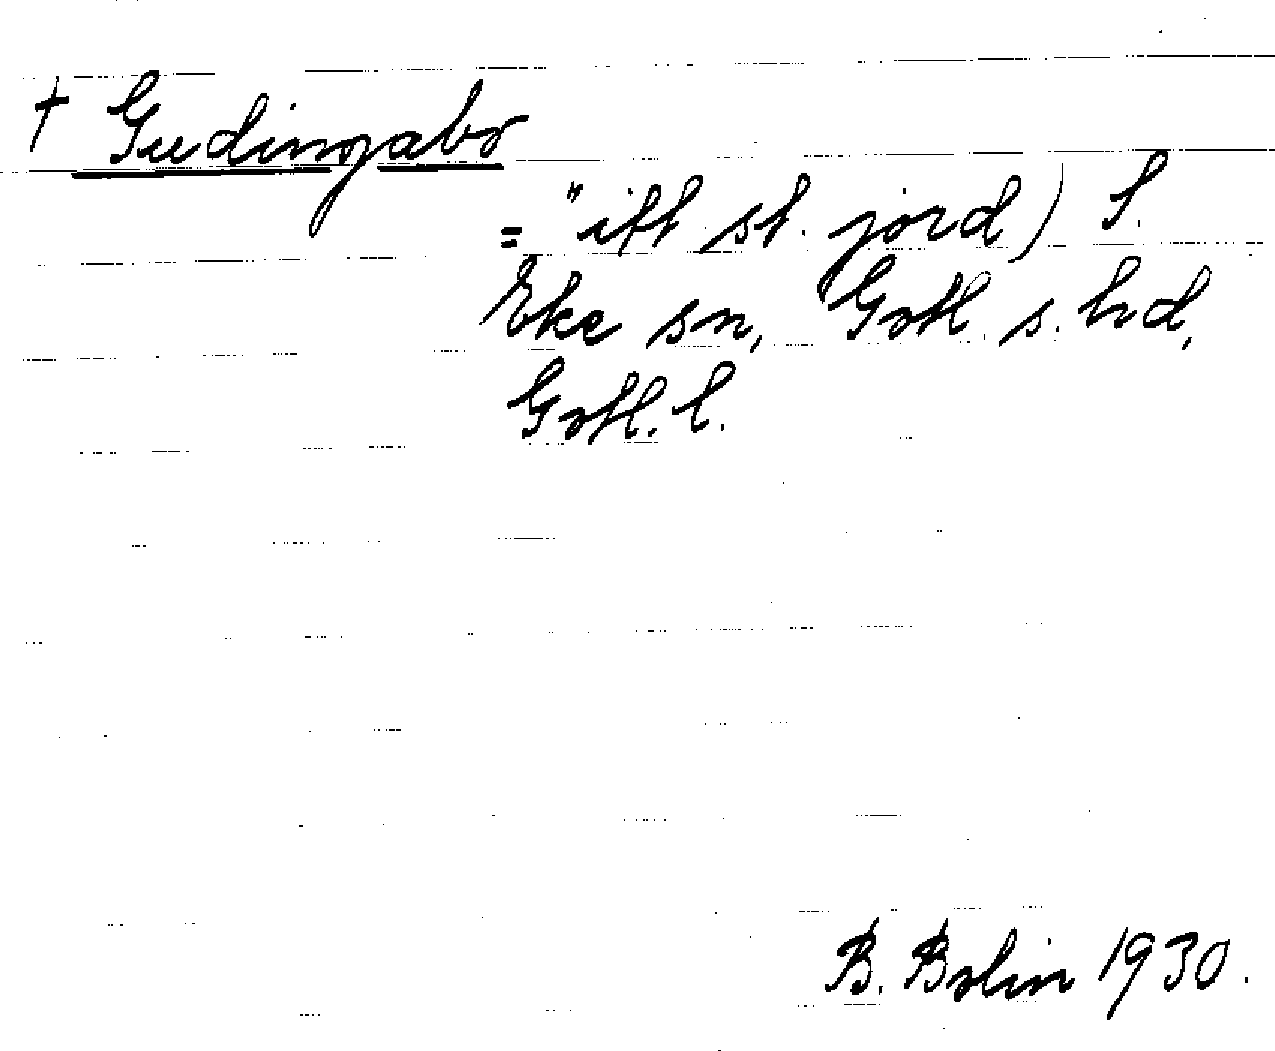 † Gudingabo
= "itt st. jord) S.
Eke sn, Gotl. s. hd,
Gotl. l.
B. Bolin 1930.